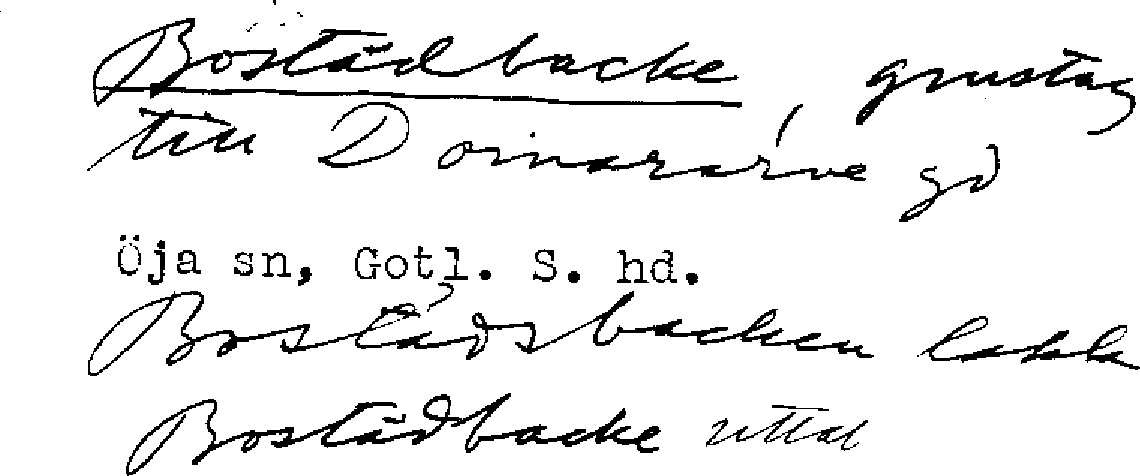 Bostädbacke, grustag
till Domararve gd
Öja sn, Gotl. S. hd.
Bostadsbacken
Bostädbacke uttal